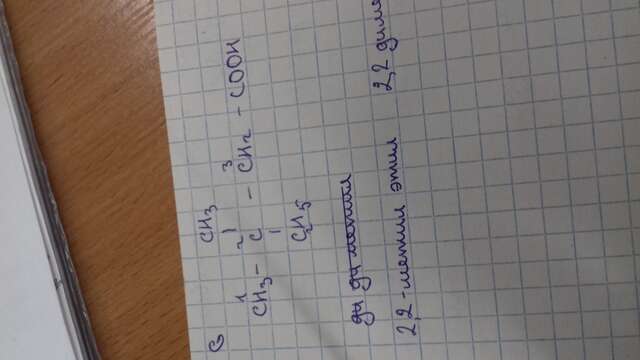 б
CH3
1 2 3
CH3 - C - CH2 - COOH
C2H5
ди ди метил
2,2-метил этил 2,2 диме